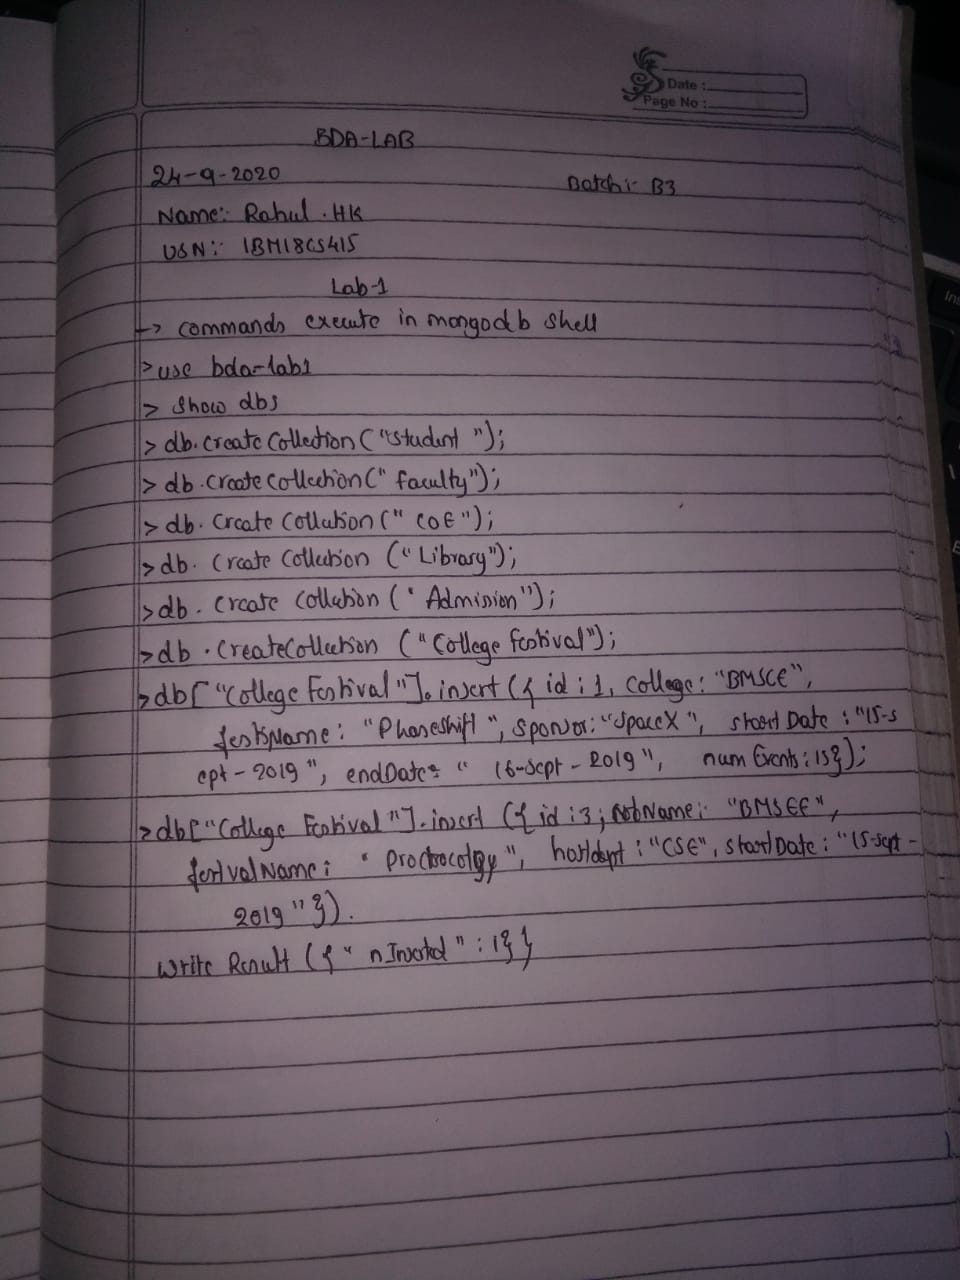 Date :
Page No :
BDA-LAB
24-9-2020 Batch:- B3
Name:- Rahul . HK
USN:- 1BM18CS415
Lab-1
-> commands execute in mongodb shell
> use bda-lab1
> show dbs
> db.createCollection ("student ");
> db.createCollection (" faculty");
> db. Create Collection (" COE ");
> db. Create Collection (" Library");
> db. Create Collection (" Admission");
> db .CreateCollection ("College Festival");
> db[ "College Festival "]. insert ({ id : 1, College: "BMSCE",
festsName: "Phaseshift ", Sponsor: "SpaceX ", start Date : "15-s
ept - 2019 ", endDate= " 16-Sept - 2019 ", num Events : 15});
> db["College Festival "]. insert ({ id : 3 ; "BMSEE ",
festvalName: " ", hostdept : "CSE", startDate : "15-sept -
2019 "}).
Write Result ({ " nInserted " : 1} }